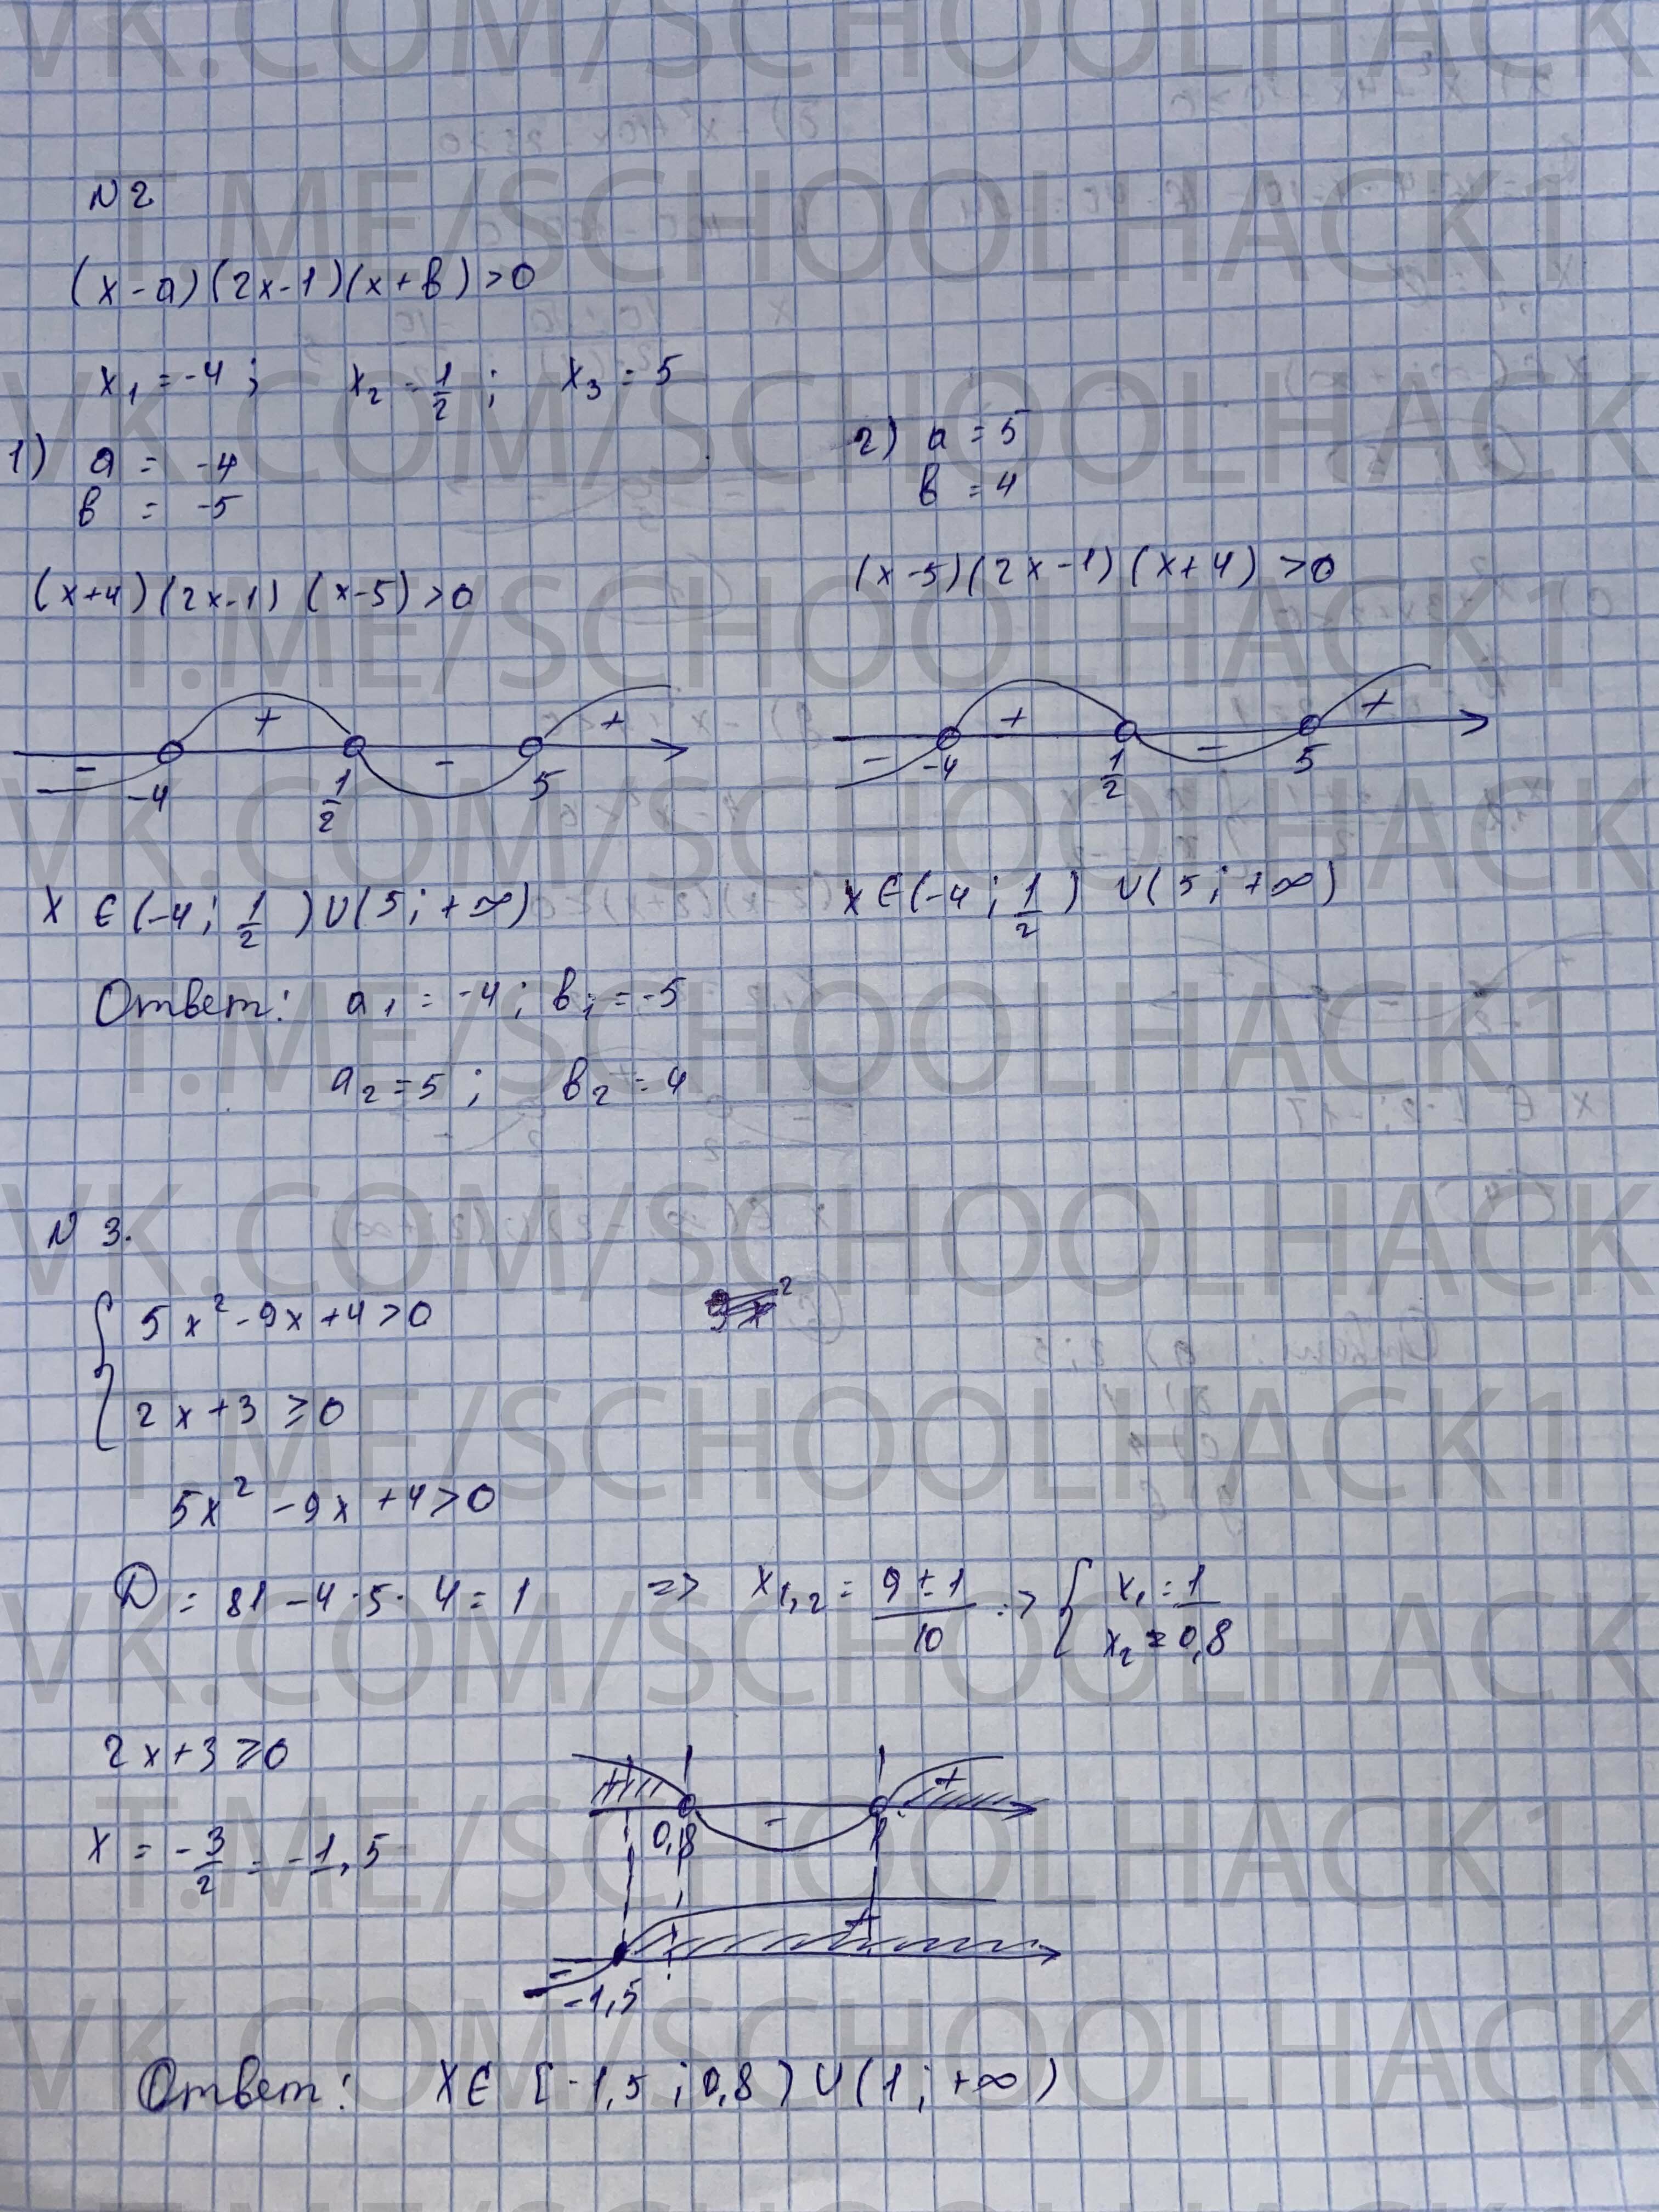 VK.COM/SCHOOLHACK
T.ME/SCHOOLHACK1
N 2
(x-a)(2x-1)(x+b)>0
x₁ = -4 ; x₂ = 1/2 ; x₃ = 5
VK.COM/SCHOOLHACK
1) a = -4
b = -5
2) a = 5
b = 4
(x+4)(2x-1)(x-5)>0
(x-5)(2x-1)(x+4)>0
T.ME/SCHOOLHACK1
- + - +
-4 1/2 5
- + - +
-4 1/2 5
VK.COM/SCHOOLHACK
x ∈ (-4 ; 1/2) ∪ (5 ; +∞)
x ∈ (-4 ; 1/2) ∪ (5 ; +∞)
Ответ: a₁ = -4 ; b₁ = -5
T.ME/SCHOOLHACK1
a₂ = 5 ; b₂ = 4
VK.COM/SCHOOLHACK
N 3.
{ 5x² - 9x + 4 > 0
2x + 3 ≥ 0
T.ME/SCHOOLHACK1
5x² - 9x + 4 > 0
D = 81 - 4·5·4 = 1 => x₁,₂ = (9 ± 1)/10 => { x₁ = 1
x₂ = 0,8
VK.COM/SCHOOLHACK
2x + 3 ≥ 0
+ - +
0,8 1
T.ME/SCHOOLHACK1
x = -3/2 = -1,5
- +
-1,5
VK.COM/SCHOOLHACK
Ответ: x ∈ [-1,5 ; 0,8) ∪ (1 ; +∞)